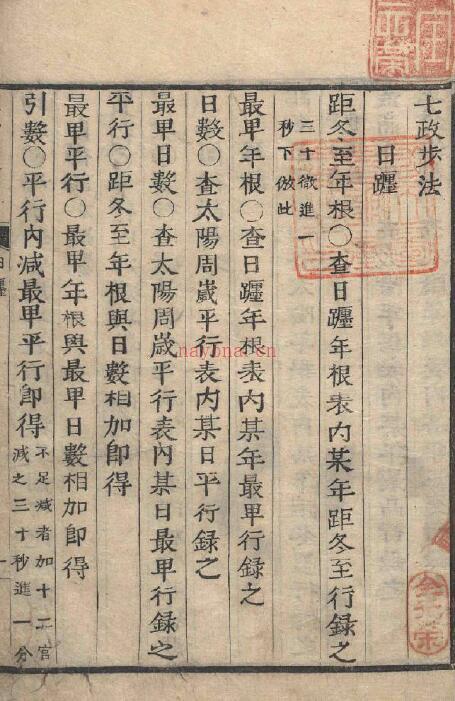 七政步法
日躔
距冬至年根○查日躔年根表内某年距冬至行録之
三十微進一
秒下倣此
最卑年根○查日躔年根表内某年最卑行録之
日數○查太陽周歲平行表内某日平行録之
最卑日數○查太陽周歲平行表内某日最卑行録之
平行○距冬至年根與日數相加卽得
最卑平行○最卑年根與最卑日數相加卽得
引數○平行内減最卑平行卽得
不足減者加十二宫
減之三十秒進一分
日躔
一
nayona.cn